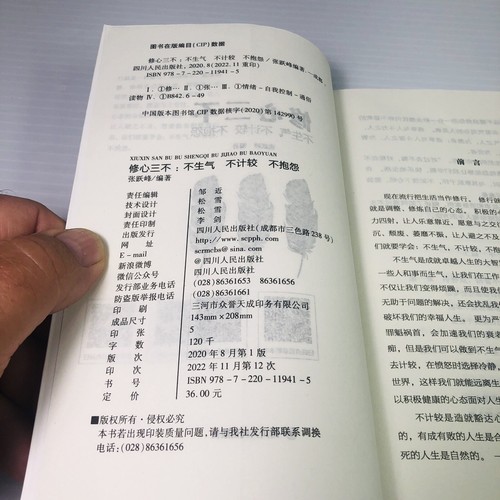 图书在版编目(CIP)数据
修心三不:不生气 不计较 不抱怨/张跃峰编著.—成都:
四川人民出版社,2020.8(2022.11重印)
ISBN 978-7-220-11941-5
Ⅰ.①修… Ⅱ.①张… Ⅲ.①情绪-自我控制-通俗
读物 Ⅳ.①B842.6-49
中国版本图书馆CIP数据核字(2020)第142990号
XIUXIN SAN BU BU SHENGQI BU JIJIAO BU BAOYUAN
修心三不:不生气 不计较 不抱怨
张跃峰/编著
责任编辑 邹近
技术设计 松雪
封面设计 松雪
责任印制 李剑
出版发行 四川人民出版社(成都市三色路238号)
网址 http://www.scpph.com
E-mail scrmcbs@sina.com
新浪微博 @四川人民出版社
微信公众号 四川人民出版社
发行部业务电话 (028)86361653 86361656
防盗版举报电话 (028)86361661
印刷 三河市众誉天成印务有限公司
成品尺寸 143mm×208mm
印张 5
字数 120千
版次 2020年8月第1版
印次 2022年11月第12次
书号 ISBN 978-7-220-11941-5
定价 36.00元
■版权所有·侵权必究
本书若出现印装质量问题,请与我社发行部联系调换
电话:(028)86361656
前言
现在流行把生活当作修行。修行
就是调整、修炼自己的心态。积极的
力四射,让人乐意靠近,愿意与之交
沉、颓废、萎靡不振,让人避之不
们就要学会:不生气,不计较,不抱
不生气是成就卓越人生的大智
一些人和事而生气,让我们在工作
不仅让我们变得烦躁,而且使我们
无助于问题的解决,还会扰乱我
破坏我们的幸福人生。更为严
罪魁祸首,会加速我们的衰老
痴,但是我们可以做到不生气
去计较,在愤怒时选择冷静,
世界,这样我们就能远离生
以积极健康的心态面对人生
不计较是造就豁达心
的,有成有败的人生是合
死的人生是自然的。一